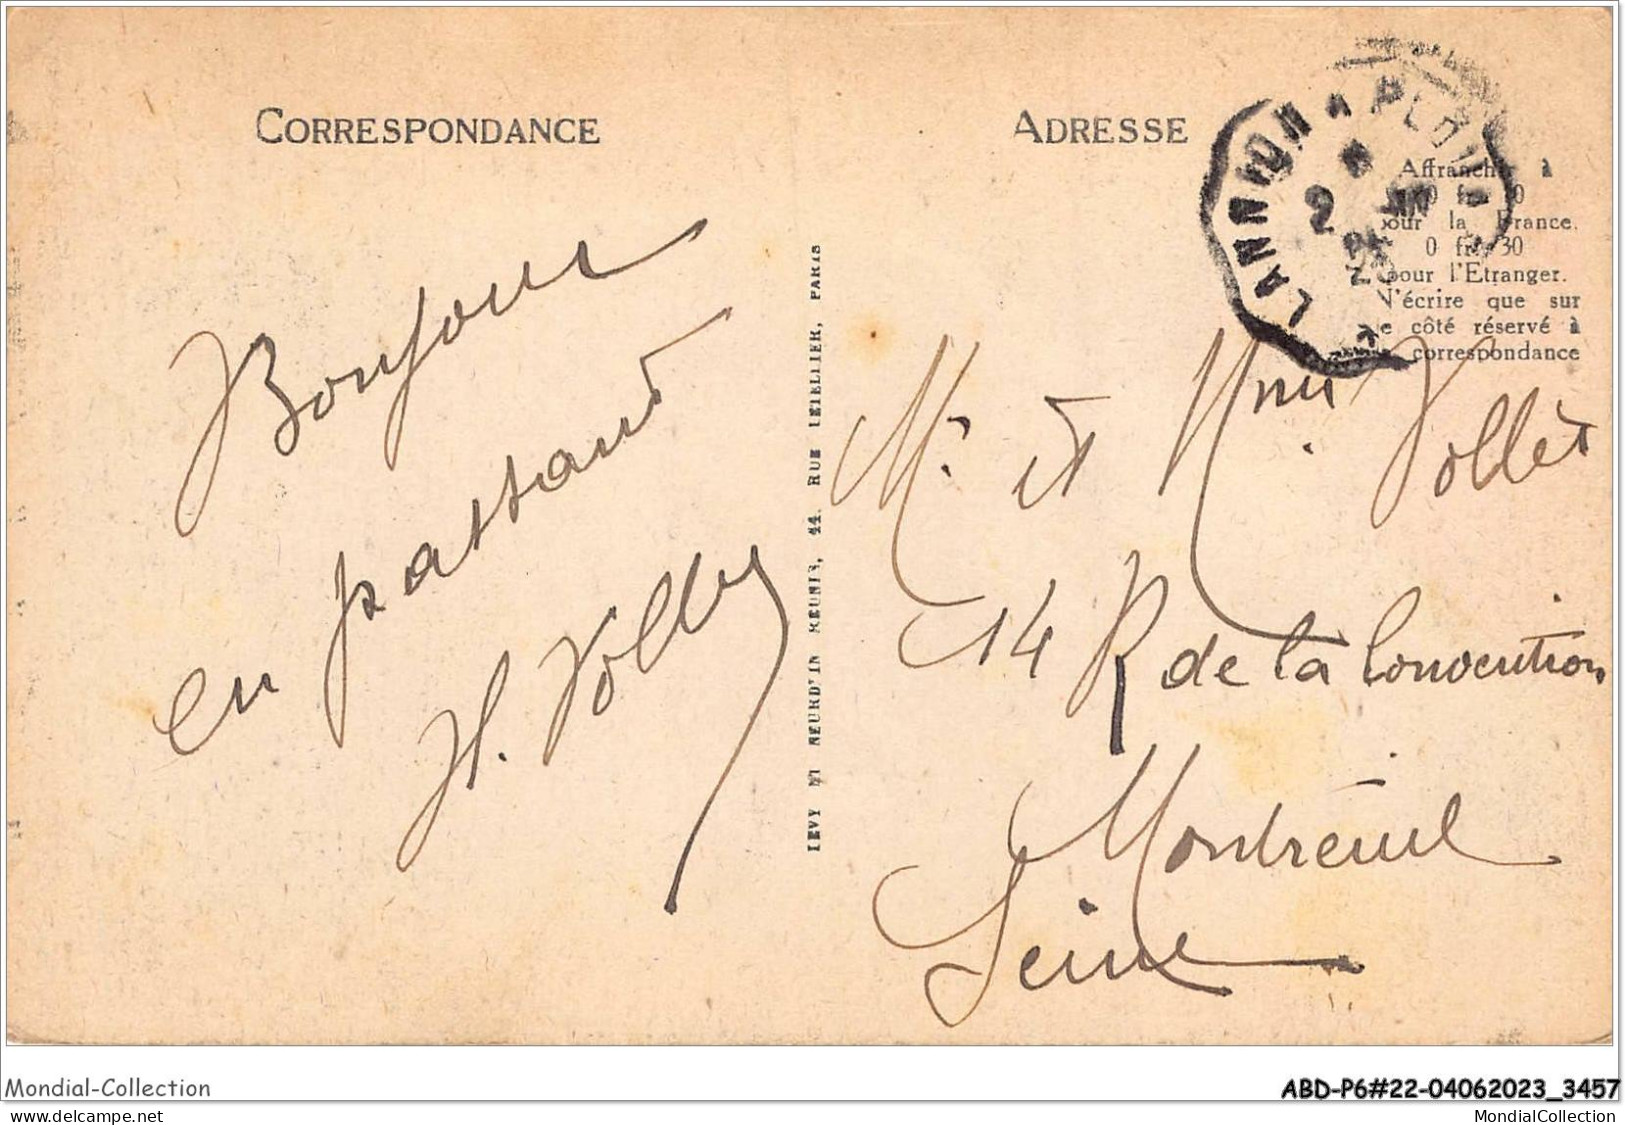 CORRESPONDANCE
Bonjour
en passant
H. Vollet
LEVY ET NEURDEIN REUNIS, 44. RUE LETELLIER, PARIS
ADRESSE
LANNION A PLOU
2
Affranchir à
0 fr. 0
pour la France.
0 fr. 30
pour l'Etranger.
N'écrire que sur
le côté réservé à
correspondance
Mr et Mme Vollet
14 R de la Convention
Montreuil
Seine
Mondial-Collection
ABD-P6#22-04062023_3457
www.delcampe.net
MondialCollection